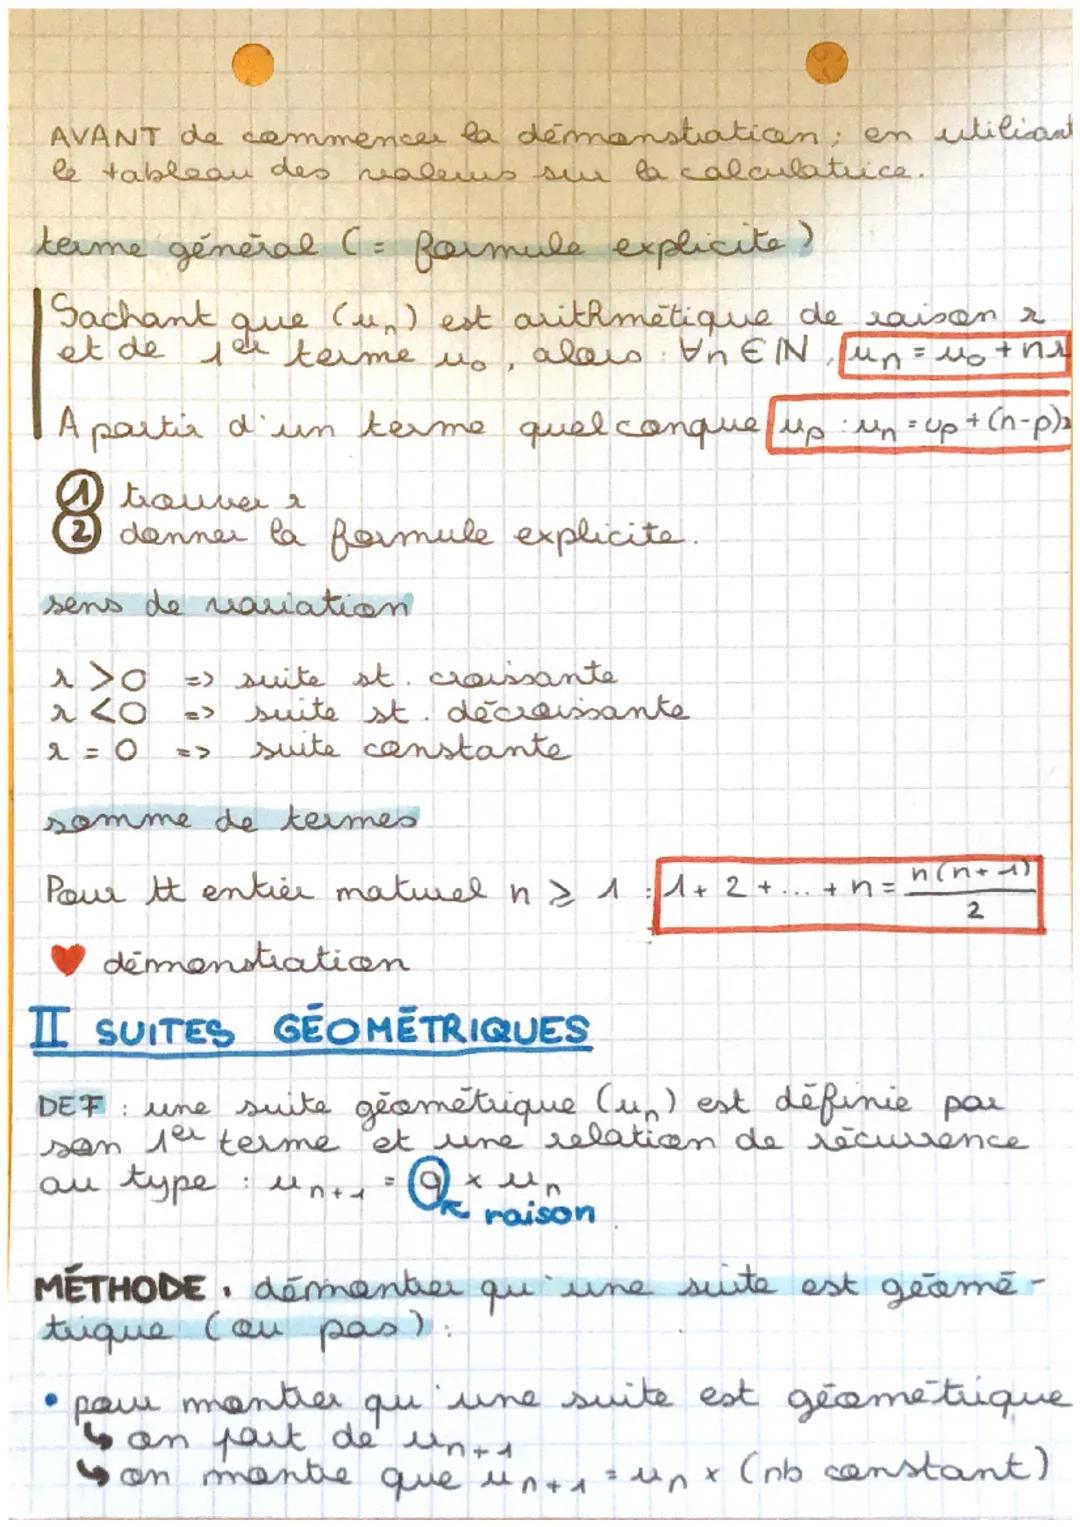 AVANT de commencer la démonstration ; en utilisant
le tableau des valeurs sur la calculatrice.
terme général (= formule explicite)
Sachant que (uₙ) est arithmétique de raison r
et de 1er terme u₀, alors ∀n ∈ ℕ, uₙ = u₀ + nr
A partir d'un terme quelconque up : uₙ = up + (n-p)r
① trouver r
② donner la formule explicite.
sens de variation
r > 0 => suite st. croissante
r < 0 => suite st. décroissante
r = 0 => suite constante
somme de termes
Pour tt entier naturel n ⩾ 1 : 1 + 2 + ... + n = n(n+1)/2
♥ démonstration
II SUITES GÉOMÉTRIQUES
DEF : une suite géométrique (uₙ) est définie par
son 1er terme et une relation de récurrence
au type : uₙ₊₁ = q × uₙ
raison
MÉTHODE . démontrer qu'une suite est géomé-
trique (ou pas) :
• pour montrer qu'une suite est géométrique
↳ on part de uₙ₊₁
↳ on montre que uₙ₊₁ = uₙ × (nb constant)